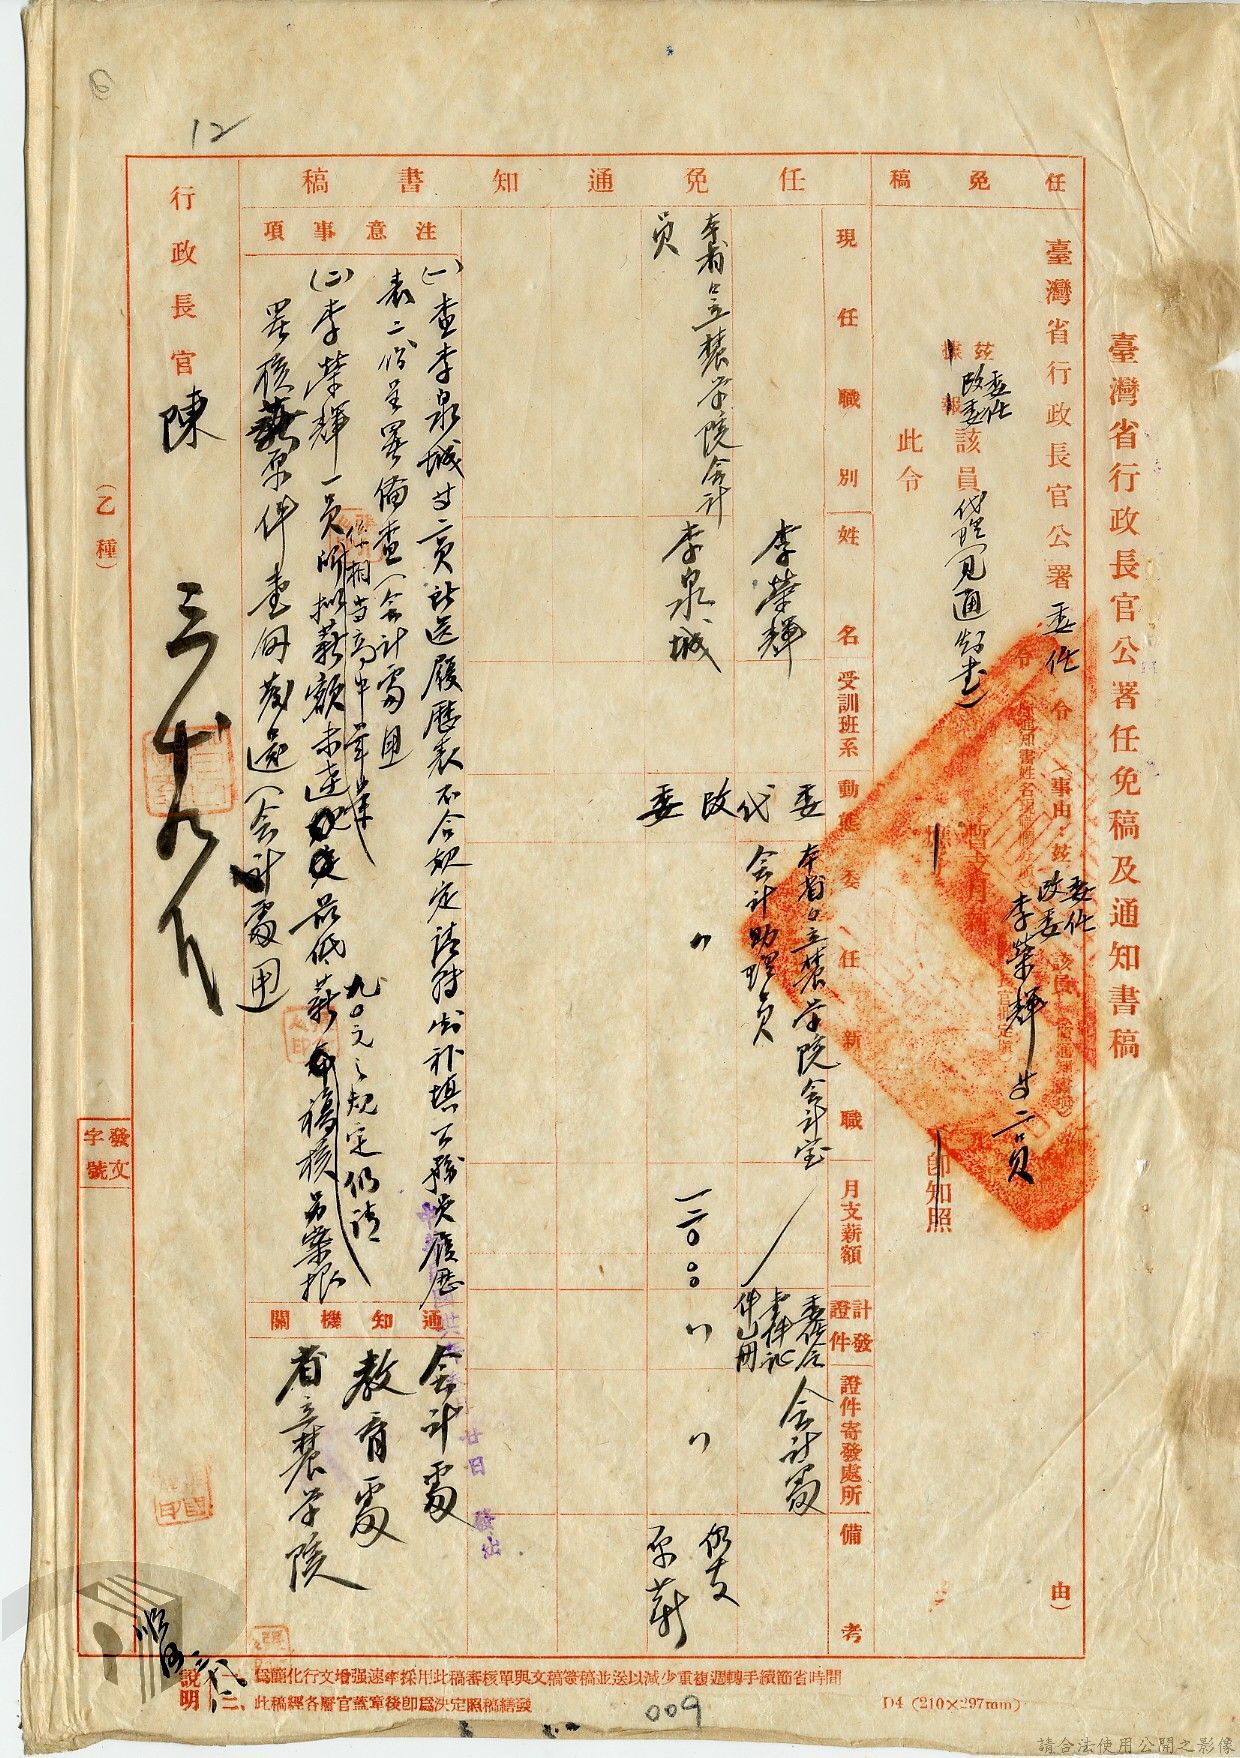 12
臺灣省行政長官公署任免稿及通知書稿
任免稿
臺灣省行政長官公署委任令(事由：茲委任改委李榮輝等二員該員由)
茲委任
據報改委
該員代理(見通知書)
暫支月薪
即知照
此令
任免通知書稿
現任職別
姓名
受訓班系
動態
委任新職
月支薪額
計發證件
證件寄發處所
備考
李榮輝
委代
本省省立農學院会計室
会計助理員
委任令
会計處
本省省立農學院会計
員
李泉城
改委
〃
一二〇〇〇
〃
〃
仍支
原薪
注意事項
(一)查李泉城等二員所送履歷表不合規定請轉知补填公務員履歷
表二份呈署備查(会計處用
(二)李榮輝一員係相当高中畢業所拟薪額未達最低薪九〇元之規定仍請
另案报
署核原件查明发還(会計處用
通知機關
会計處
教育處
省立農学院
廿日
發出
行政長官陳
三十九
(乙種)
發文
字號
說明
一、為簡化行文增强速率採用此稿審核單與文稿簽稿並送以減少重複週轉手續節省時間
二、此稿經各層官蓋章後即為決定照稿繕發
D4 (210×297mm)
009
請合法使用公開之影像